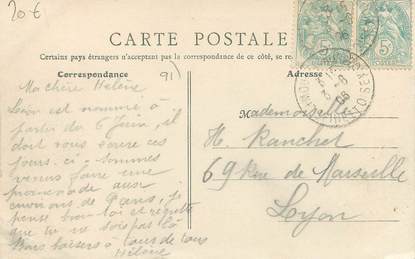 20€
CARTE POSTALE
Certains pays étrangers n'acceptant pas la correspondance de ce côté, se
Correspondance
91
Adresse
Ma chère Hélène
Léon est nommé à
partir du 6 Juin, il
doit vous
jours-ci. Sommes
venus faire une
promenade aux
environs de Paris, je
pense bien à toi et regrette
que tu ne sois pas là
Bons baisers à tous de tous
Hélène
Mademoiselle
H. Ranchet
69 Rue de Marseille
Lyon
5
5